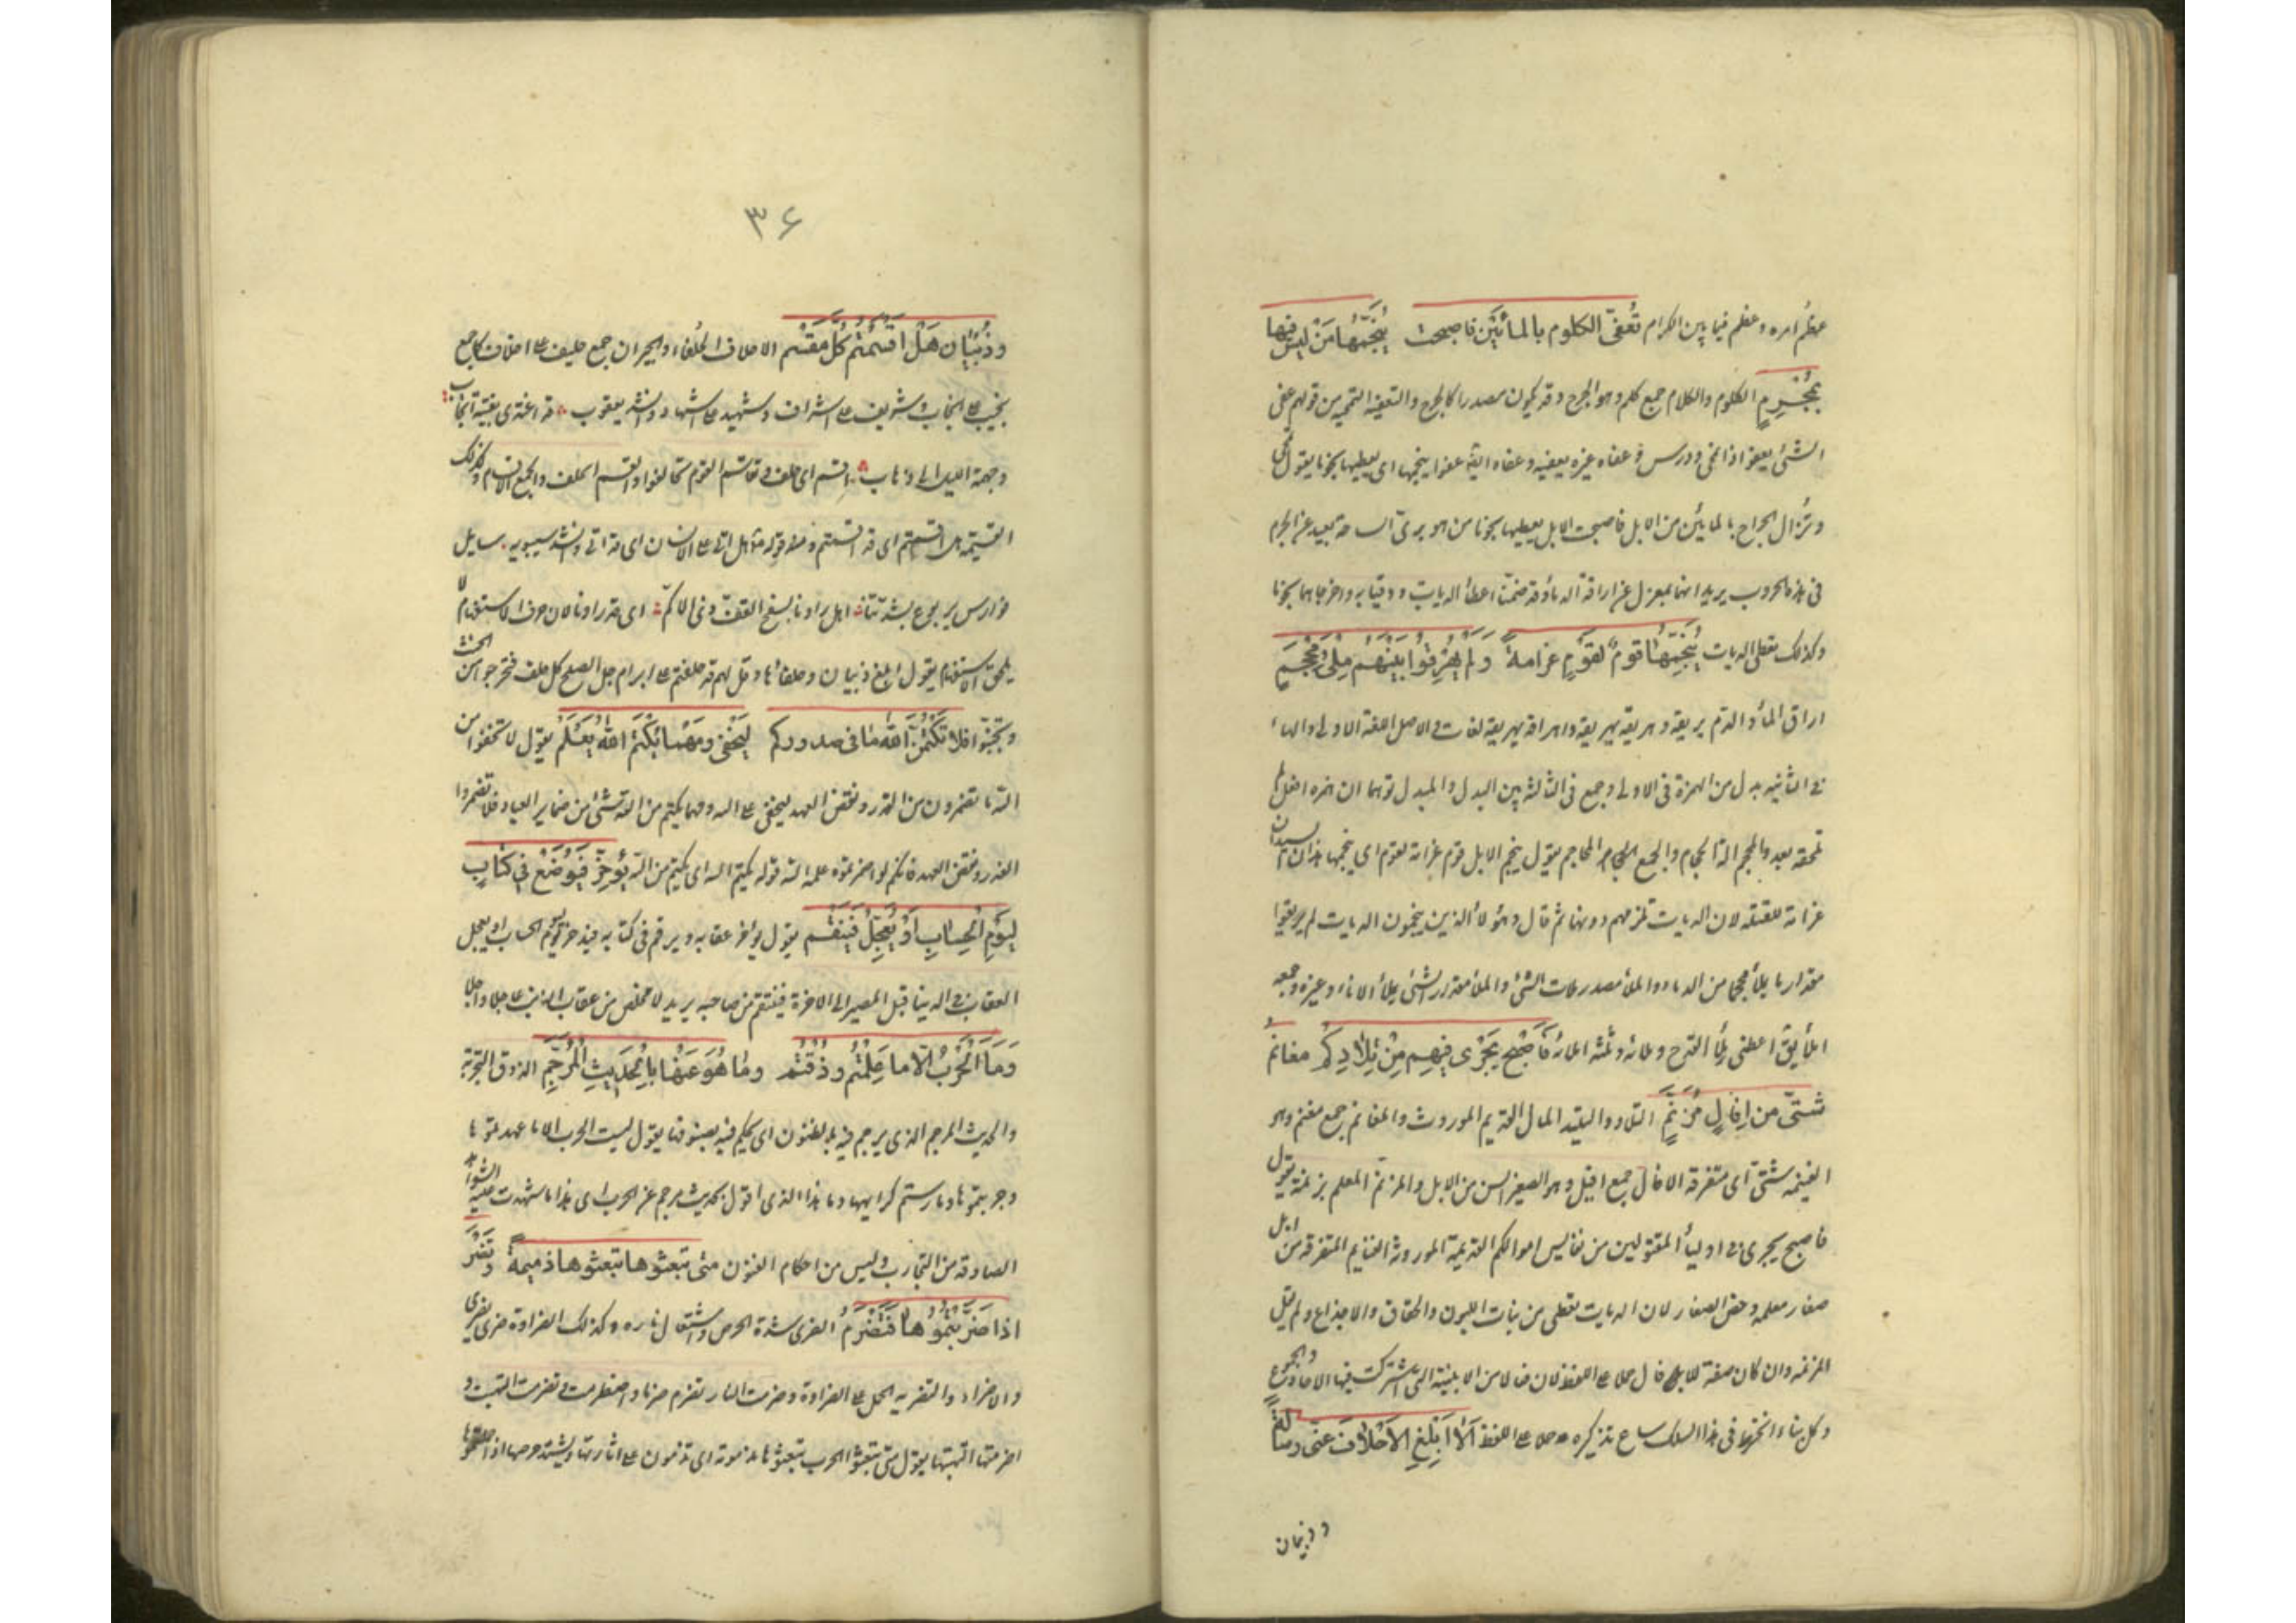 عظم امره وعظم فيما بين الكرام تُعفّى الكلوم بالمائين فاصبحت يُنَجِّمُها مَنْ ليسَ فيها
بمُجْرِمٍ الكلوم والكلام جمع كلم وهو الجرح وقد يكون مصدرا كالجرح والتعفيه التمحيه من قولهم عفى
الشئ يعفو اذا انمحى ودرس وعفاه غيره يعفيه وعفاه ايضا عفوا ينجمها اى يعطيها نجوما يقول تمحى
وتزال الجراح بالمائين من الابل فاصبحت الابل يعطيها نجوما من هو برئ الساحة بعيد عن الجرم
فى هذه الحروب يريد انهما بمعزل عن اراقة الدماء وقد ضمنا اعطاء الديات ووفيا به واخرجاها نجوما
وكذلك تعطى الديات يُنَجِّمُها قومٌ لقَوْمٍ غرامةً ولم يُهَرِيقُوا بَيْنَهُم مِلْءَ مِحْجَمِ
اراق الماء والدم يريقه وهريقه يهريقه واهراقه يهريقه لغات والاصل اللغة الاولى والهاء
فى الثانيه بدل من الهمزة فى الاولى وجمع فى الثالثة بين البدل والمبدل توهما ان همزة افعل لم
تلحقه بعد والمحجم الة الحجام والجمع المحاجم يقول ينجم الابل قوم غرامة لقوم اى ينجمها هذان السيدان
غرامة للقتلى لان الديات تلزمهم دونهما ثم قال وهؤلاء الذين ينجمون الديات لم يريقوا
مقدار ما يملأ محجما من الدماء والملأ مصدر ملات الشئ والملأ مقدار الشئ يملأ الاناء وغيره وجمعه
املأ يق اعطنى ملأ القدح وملائه وثلثة املائه فَاَصْبَحَ يَجْرى فِيهِم مِنْ تِلادِكُم مغانمُ
شتّى من اِفالٍ مُزَنَّمٍ التلاد والتليد المال القديم الموروث والمغانم جمع مغنم وهو
الغنيمه شتى اى متفرقه الافال جمع افيل وهو الصغير السن من الابل والمزنم المعلم بزنمة يقول
فاصبح يجرى فى اوليأ المقتولين من نفايس اموالكم القديمة الموروثة الغنايم المتفرقه من ابل
صغار معلمه وخص الصغار لان الديات تعطى من بنات اللبون والحقاق والاجذاع ولم يقل
المزنمه وان كان صفة للافال حملا على اللفظ لان فعالا من الابنية التى اشتركت فيها الاحاد والجموع
وكل بناء انخرط فى هذا السلك ساغ تذكيره حملا على اللفظ اَلا اَبلِغِ الاَحْلافَ عنّى رسالةً
وذبيان
۳۶
وذُبْيان هَلْ اقسَمْتُم كُلَّ مُقْسَمِ الاحلاف الحلفاء والجيران جمع حليف على احلاف كما جمع
نجيب على انجاب وشريف على اشراف وشهيد على اشهاد وانشد يعقوب قد اغتدى بفتية انجاب
وجهمة الليل الى ذهاب اقسم اى حلف وتقاسم القوم تحالفوا والقسم الحلف والجمع الاقسام وكذلك
القسيمة هل اقسمتم اى قد اقسمتم ومنه قوله هل اتى على الانسان اى قد اتى وانشد سيبويه سايل
فوارس يربوع بشدتنا اهل راونا بسفح القف ذى الاكم اى قد راونا لان حرف الاستفهام لا
يلحق الاستفهام يقول ابلغ ذبيان وحلفائها وقل لهم قد حلفتم على ابرام حبل الصلح كل حلف فتحرجوا من الحنث
وتجنبوا فلا تكتُمُنّ اللهَ ما فى صدوركم ليَخْفى ومَهْما يُكْتَمِ اللهُ يَعْلَمِ يقول لا تخفوا من
الله ما تضمرون من الغدر ونقض العهد ليخفى على الله ومهما يكتم من الله شئ من ضماير العباد فلا تضمروا
الغدر ونقض العهد فانكم لو اضمرتموه علمه الله قوله يكتم الله اى يكتم من الله يُؤَخَّرْ فيُوضَعْ فى كتابٍ
ليَوْمِ الحِسابِ اَوْ يُعَجَّلْ فَيُنْقَمِ يقول يؤخر عقابه ويرقم فى كتابه فيدخر ليوم الحساب او يعجل
العقاب فى الدنيا قبل المصير الى الاخرة فينتقم من صاحبه يريد لا مخلص من عقاب الذنب عاجلا واجلا
وَمَا الْحَرْبُ اِلّا ما عَلِمْتُم وذُقْتُمُ وما هُوَ عَنْها بِالْحَديثِ المُرَجَّمِ الذوق التجربة
والحديث المرجم الذى يرجم فيه بالظنون اى يحكم فيه بظنونها يقول ليست الحرب الا ما عهدتموها
وجربتموها ومارستم كرايهها وما هذا الذى اقول بحديث مرجم عن الحرب اى هذا ما شهدت عليه الشواهد
الصادقه من التجارب وليس من احكام الظنون متى تبعثوها تبعثوها ذميمةً وتَضْرَ
اذا ضَرَّيْتُمُوها فَتَضْرَمِ الضرى شدة الحرص واشتعال ناره وكذلك الضراوة ضرى يضرى
والاضراء والتضريه الحمل على الضراوة وضرمت النار تضرم ضرما واضطرمت وتضرمت التهبت و
اضرمتها الهبتها يقول متى تبعثوا الحرب تبعثوها مذمومة اى تذمون على اثارتها ويشتد حرصها اذا